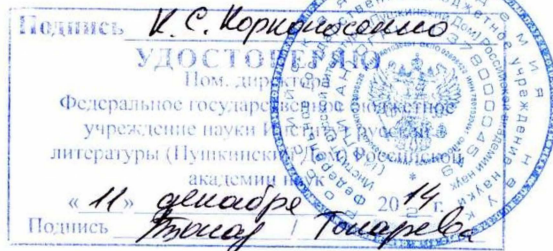 Подпись К. С. Корконосенко
УДОСТОВЕРЯЮ
Пом. директора
Федеральное государственное бюджетное
учреждение науки Институт русской
литературы (Пушкинский Дом) Российской
академии наук
« 11 » декабря 2014 г.
Подпись / Токарева